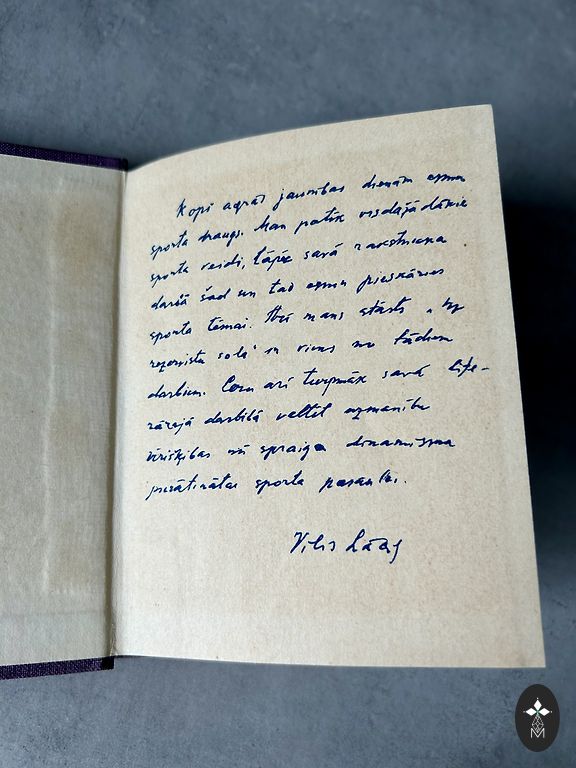 Kopš agrās jaunības dienām esmu
sporta draugs. Man patīk visdažādākie
sporta veidi, tāpēc savā rakstnieka
darbā šad un tad esmu pieskāries
sporta tēmai. Arī mans stāsts „Uz
rezervistu sola" ir viens no tādiem
darbiem. Ceru arī turpmāk savā lite-
rārajā darbībā veltīt uzmanību
vīrišķības un spraiga dinamisma
piesātinātai sporta pasaulei.
Vilis Lācis
M